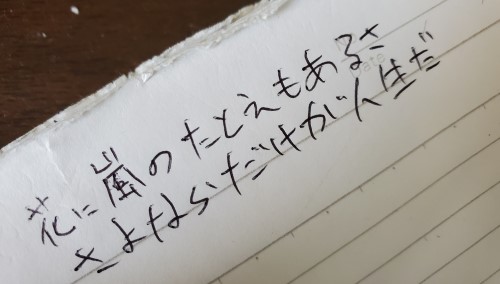 Date
花に嵐のたとえもあるさ
さよならだけが人生だ